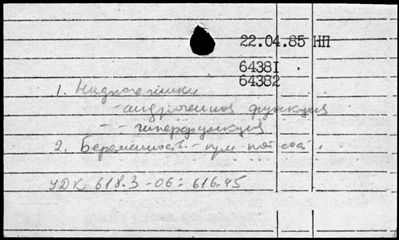 22.04.85 НП
64381
64382
1. Надпочечники
- андрогенная функция
- - гиперфункция
2. Беременность -
УДК 618.3-06:616.45